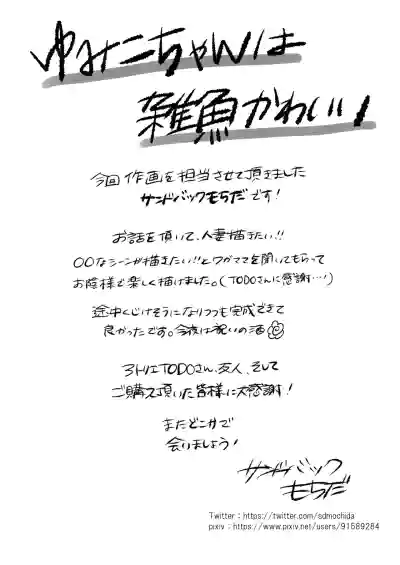 ゆみこちゃんは
雑魚かわいい
今回作画を担当させて頂きました
サンドバックもちだです!
お話を頂いて、人妻描きたい!!
○○なシーンが描きたい!!とワガママを聞いてもらって
お陰様で楽しく描けました。(TODOさんに感謝…!)
途中くじけそうになりつつも完成できて
良かったです。今夜は祝いの酒
アトリエTODOさん、友人、そして
ご購入頂いた皆様に大感謝!
またどこかで
会いましょう!
サンドバック
もちだ
Twitter:https://twitter.com/sdmochida
pixiv:https://www.pixiv.net/users/91589284